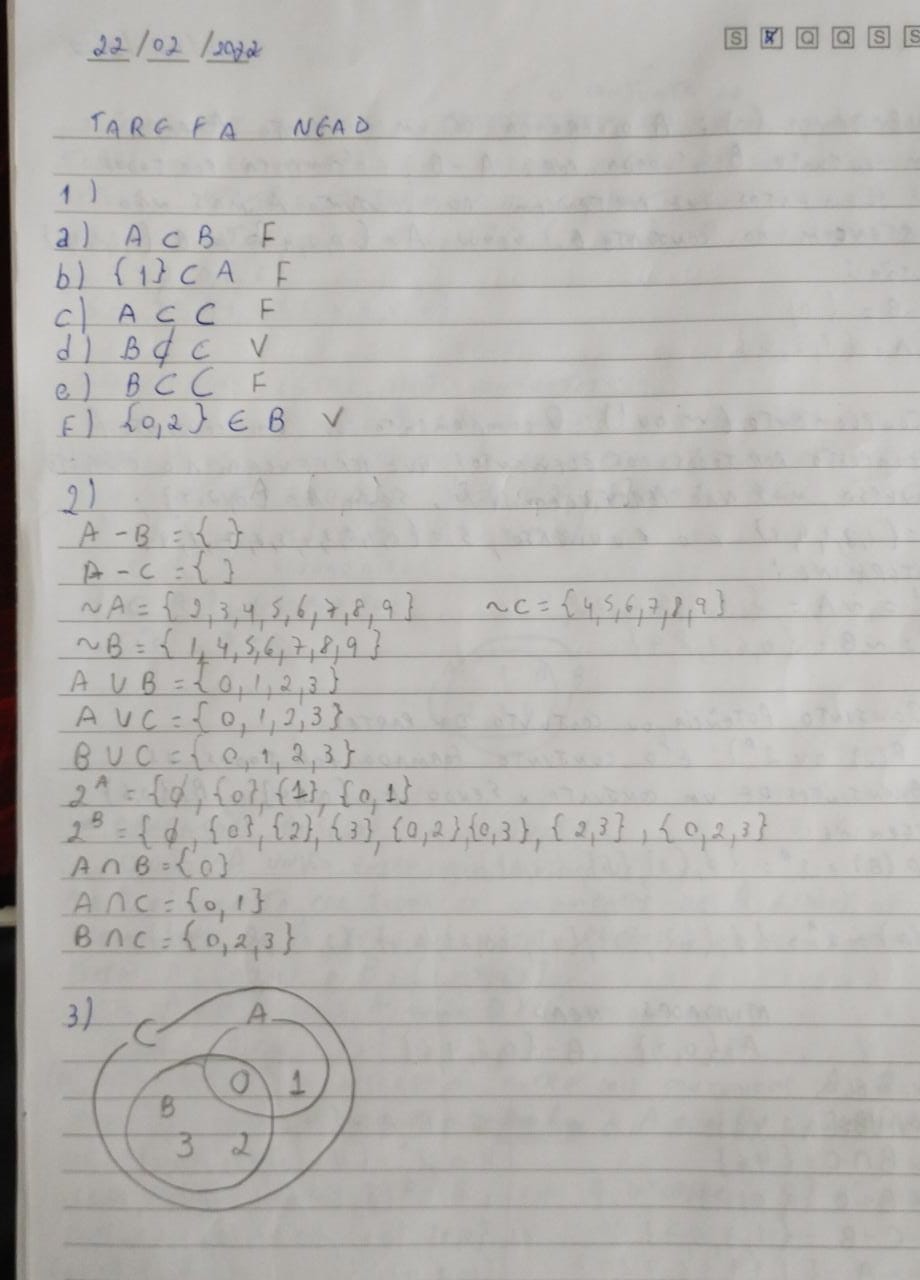 22/02/2022
S T Q Q S S
TAREFA NEAD
1)
a) A ⊂ B F
b) {1} ⊂ A F
c) A ⊂ C F
d) B ⊄ C V
e) B ⊂ C F
F) {0,2} ∈ B V
2)
A - B = { }
A - C = { }
~A = { 2,3,4,5,6,7,8,9} ~C = {4,5,6,7,8,9}
~B = { 1,4,5,6,7,8,9}
A ∪ B = {0,1,2,3}
A ∪ C = {0,1,2,3}
B ∪ C = {0,1,2,3}
2^A = {∅, {0} {1}, {0,1}
2^B = {∅, {0}, {2}, {3}, {0,2} {0,3}, {2,3}, {0,2,3}
A ∩ B = {0}
A ∩ C = {0,1}
B ∩ C = {0,2,3}
3)
A
C
0 1
B
3 2